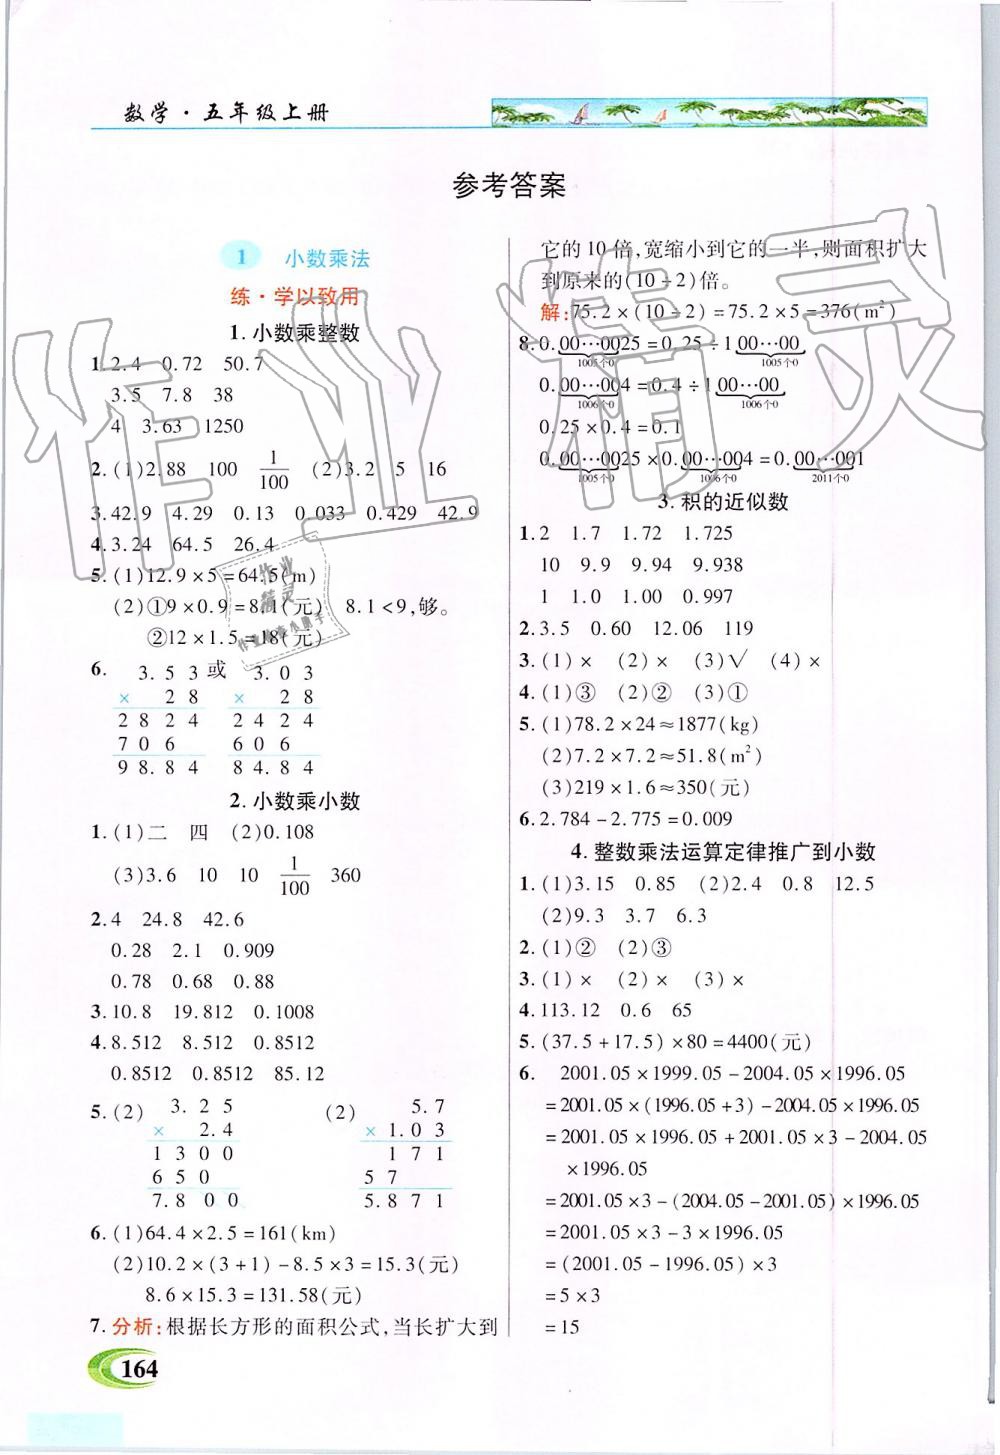 数学·五年级上册
参考答案
1 小数乘法
练·学以致用
1.小数乘整数
1.2.4 0.72 50.7
3.5 7.8 38
4 3.63 1250
2.(1)2.88 100 1/100 (2)3.2 5 16
3.42.9 4.29 0.13 0.033 0.429 42.9
4.3.24 64.5 26.4
5.(1)12.9×5=64.5(m)
(2)①9×0.9=8.1(元) 8.1<9,够。
②12×1.5=18(元)
6. 3.53 或 3.03
× 28 × 28
2824 2424
706 606
98.84 84.84
2.小数乘小数
1.(1)二 四 (2)0.108
(3)3.6 10 10 1/100 360
2.4 24.8 42.6
0.28 2.1 0.909
0.78 0.68 0.88
3.10.8 19.812 0.1008
4.8.512 8.512 0.8512
0.8512 0.8512 85.12
5.(2) 3.25 (2) 5.7
× 2.4 × 1.03
1300 171
650 57
7.800 5.871
6.(1)64.4×2.5=161(km)
(2)10.2×(3+1)-8.5×3=15.3(元)
8.6×15.3=131.58(元)
7.分析:根据长方形的面积公式,当长扩大到
164
它的10倍,宽缩小到它的一半,则面积扩大
到原来的(10÷2)倍。
解:75.2×(10÷2)=75.2×5=376(m²)
8.0.00…0025=0.25÷100…00
1005个0 1005个0
0.00…004=0.4÷100…00
1006个0 1006个0
0.25×0.4=0.1
0.00…0025×0.00…004=0.00…001
1005个0 1006个0 2011个0
3.积的近似数
1.2 1.7 1.72 1.725
10 9.9 9.94 9.938
1 1.0 1.00 0.997
2.3.5 0.60 12.06 119
3.(1)× (2)× (3)√ (4)×
4.(1)③ (2)② (3)①
5.(1)78.2×24≈1877(kg)
(2)7.2×7.2≈51.8(m²)
(3)219×1.6≈350(元)
6.2.784-2.775=0.009
4.整数乘法运算定律推广到小数
1.(1)3.15 0.85 (2)2.4 0.8 12.5
(2)9.3 3.7 6.3
2.(1)② (2)③
3.(1)× (2)× (3)×
4.113.12 0.6 65
5.(37.5+17.5)×80=4400(元)
6. 2001.05×1999.05-2004.05×1996.05
=2001.05×(1996.05+3)-2004.05×1996.05
=2001.05×1996.05+2001.05×3-2004.05
×1996.05
=2001.05×3-(2004.05-2001.05)×1996.05
=2001.05×3-3×1996.05
=(2001.05-1996.05)×3
=5×3
=15
作业精灵
作业精灵